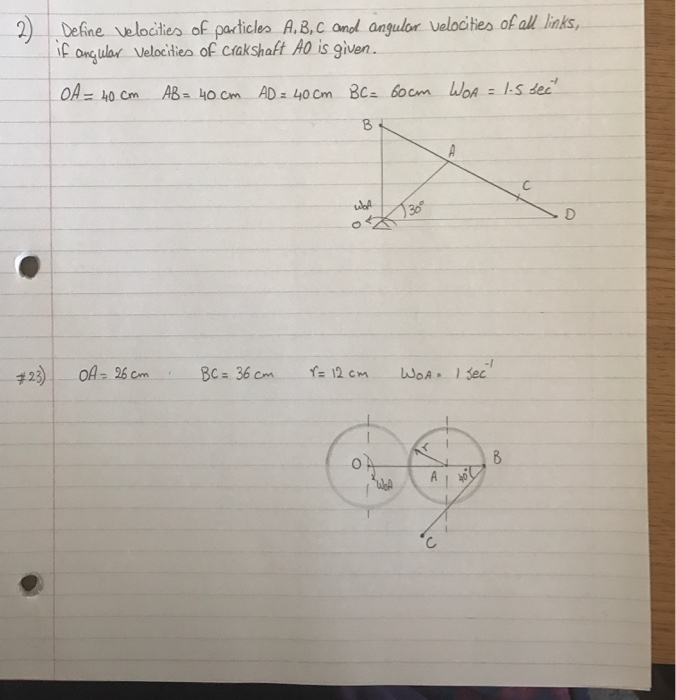 2) Define velocities of particles A, B, C and angular velocities of all links,
if angular velocities of crakshaft AO is given.
OA = 40 cm AB = 40 cm AD = 40 cm BC = 60 cm WOA = 1.5 sec⁻¹
B
A
C
WOA
30°
O
D
#23) OA = 26 cm BC = 36 cm r = 12 cm WOA = 1 sec⁻¹
r
O
B
A
40°
WOA
C